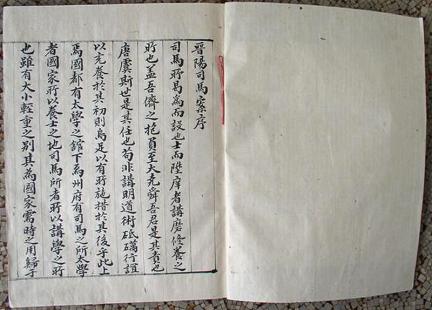 晉陽司馬案序
司馬所曷為而設也士而陞庠者講磨修養之
所也盖吾儕之抱負至大堯舜吾君是其責也
唐虞斯世是其任也苟非講明道術砥礪行誼
以充養於其初則烏足以有所施措於其後乎此上
焉國都有太學之舘下焉州府有司馬之所太學
者國家所以養士之地司馬所者所以講學之所
也雖有大小輕重之別其為國家需時之用歸于